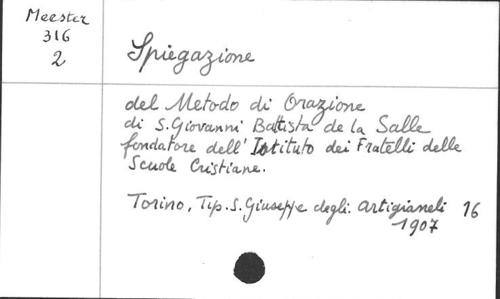 Meester
316
2
Spiegazione
del Metodo di Orazione
di S. Giovanni Battista de la Salle
fondatore dell' Istituto dei Fratelli delle
Scuole Cristiane.
Torino, Tip. S. Giuseppe degli Artigianeli 16
1907